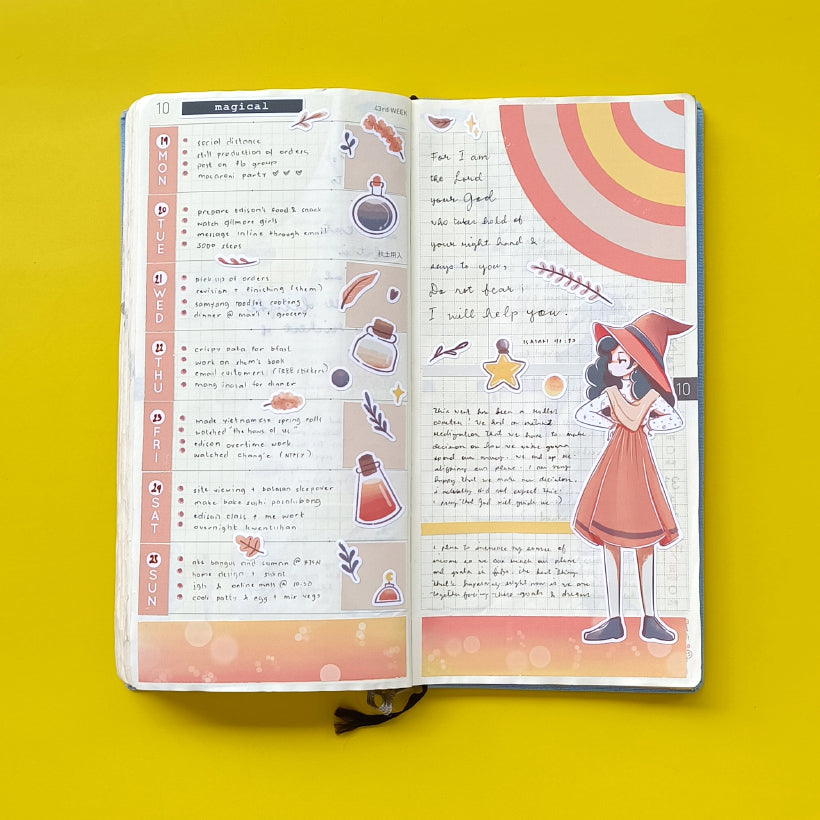 10
magical
43rd WEEK
19
MON
social distance
still production of orders
post on fb group
macaroni party
20
TUE
prepare edison's food & snack
watch gilmore girls
message inline through email
3000 steps
秋土用入
21
WED
pick up of orders
revision + finishing (shem)
samyang noodles cooking
dinner @ max's + grocery
22
THU
crispy pata for bfast
work on shem's book
email customers (FREE stickers)
mang inasal for dinner
23
FRI
made vietnamese spring rolls
watched "the hows of us"
edison overtime work
watched chang'e (NTFLX)
24
SAT
site viewing + batasan sleepover
make bake sushi pasalubong
edison class + me work
overnight kwentuhan
25
SUN
bangus and @
home design +
& online mass @ 10:30
cook patty & egg + mix vegs
For I am
the Lord
your God
who takes hold of
your right hand &
says to you,
Do not fear;
I will help you.
ISAIAH 41:13
10
This week has been a roller
coaster! We had an
that we have to make
decision on how we
spend our money. We end up
our plans. I am very
happy that we made our decision.
I actually did not expect this.
I pray that God will guide us :)
I plan to my source of
income so we can reach our plans
and goals in The best thing
that's happening right now is we are
together facing these goals & dreams